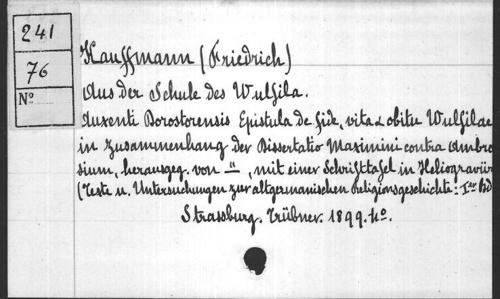 241
76
No
Kauffmann (Friedrich)
Aus der Schule des Wulfila.
Auxenti Dorostorensis Epistula de fide, vita & obitu Wulfilae
in Zusammenhang der Dissertatio Maximini contra Ambro
sium, herausgeg. von —"—, mit einer Schrifttafel in Heliogravür
(Texte u. Untersuchungen zur altgermanischen Religionsgeschichte: Ier Bd
Strassburg. Trübner. 1899. 4o.